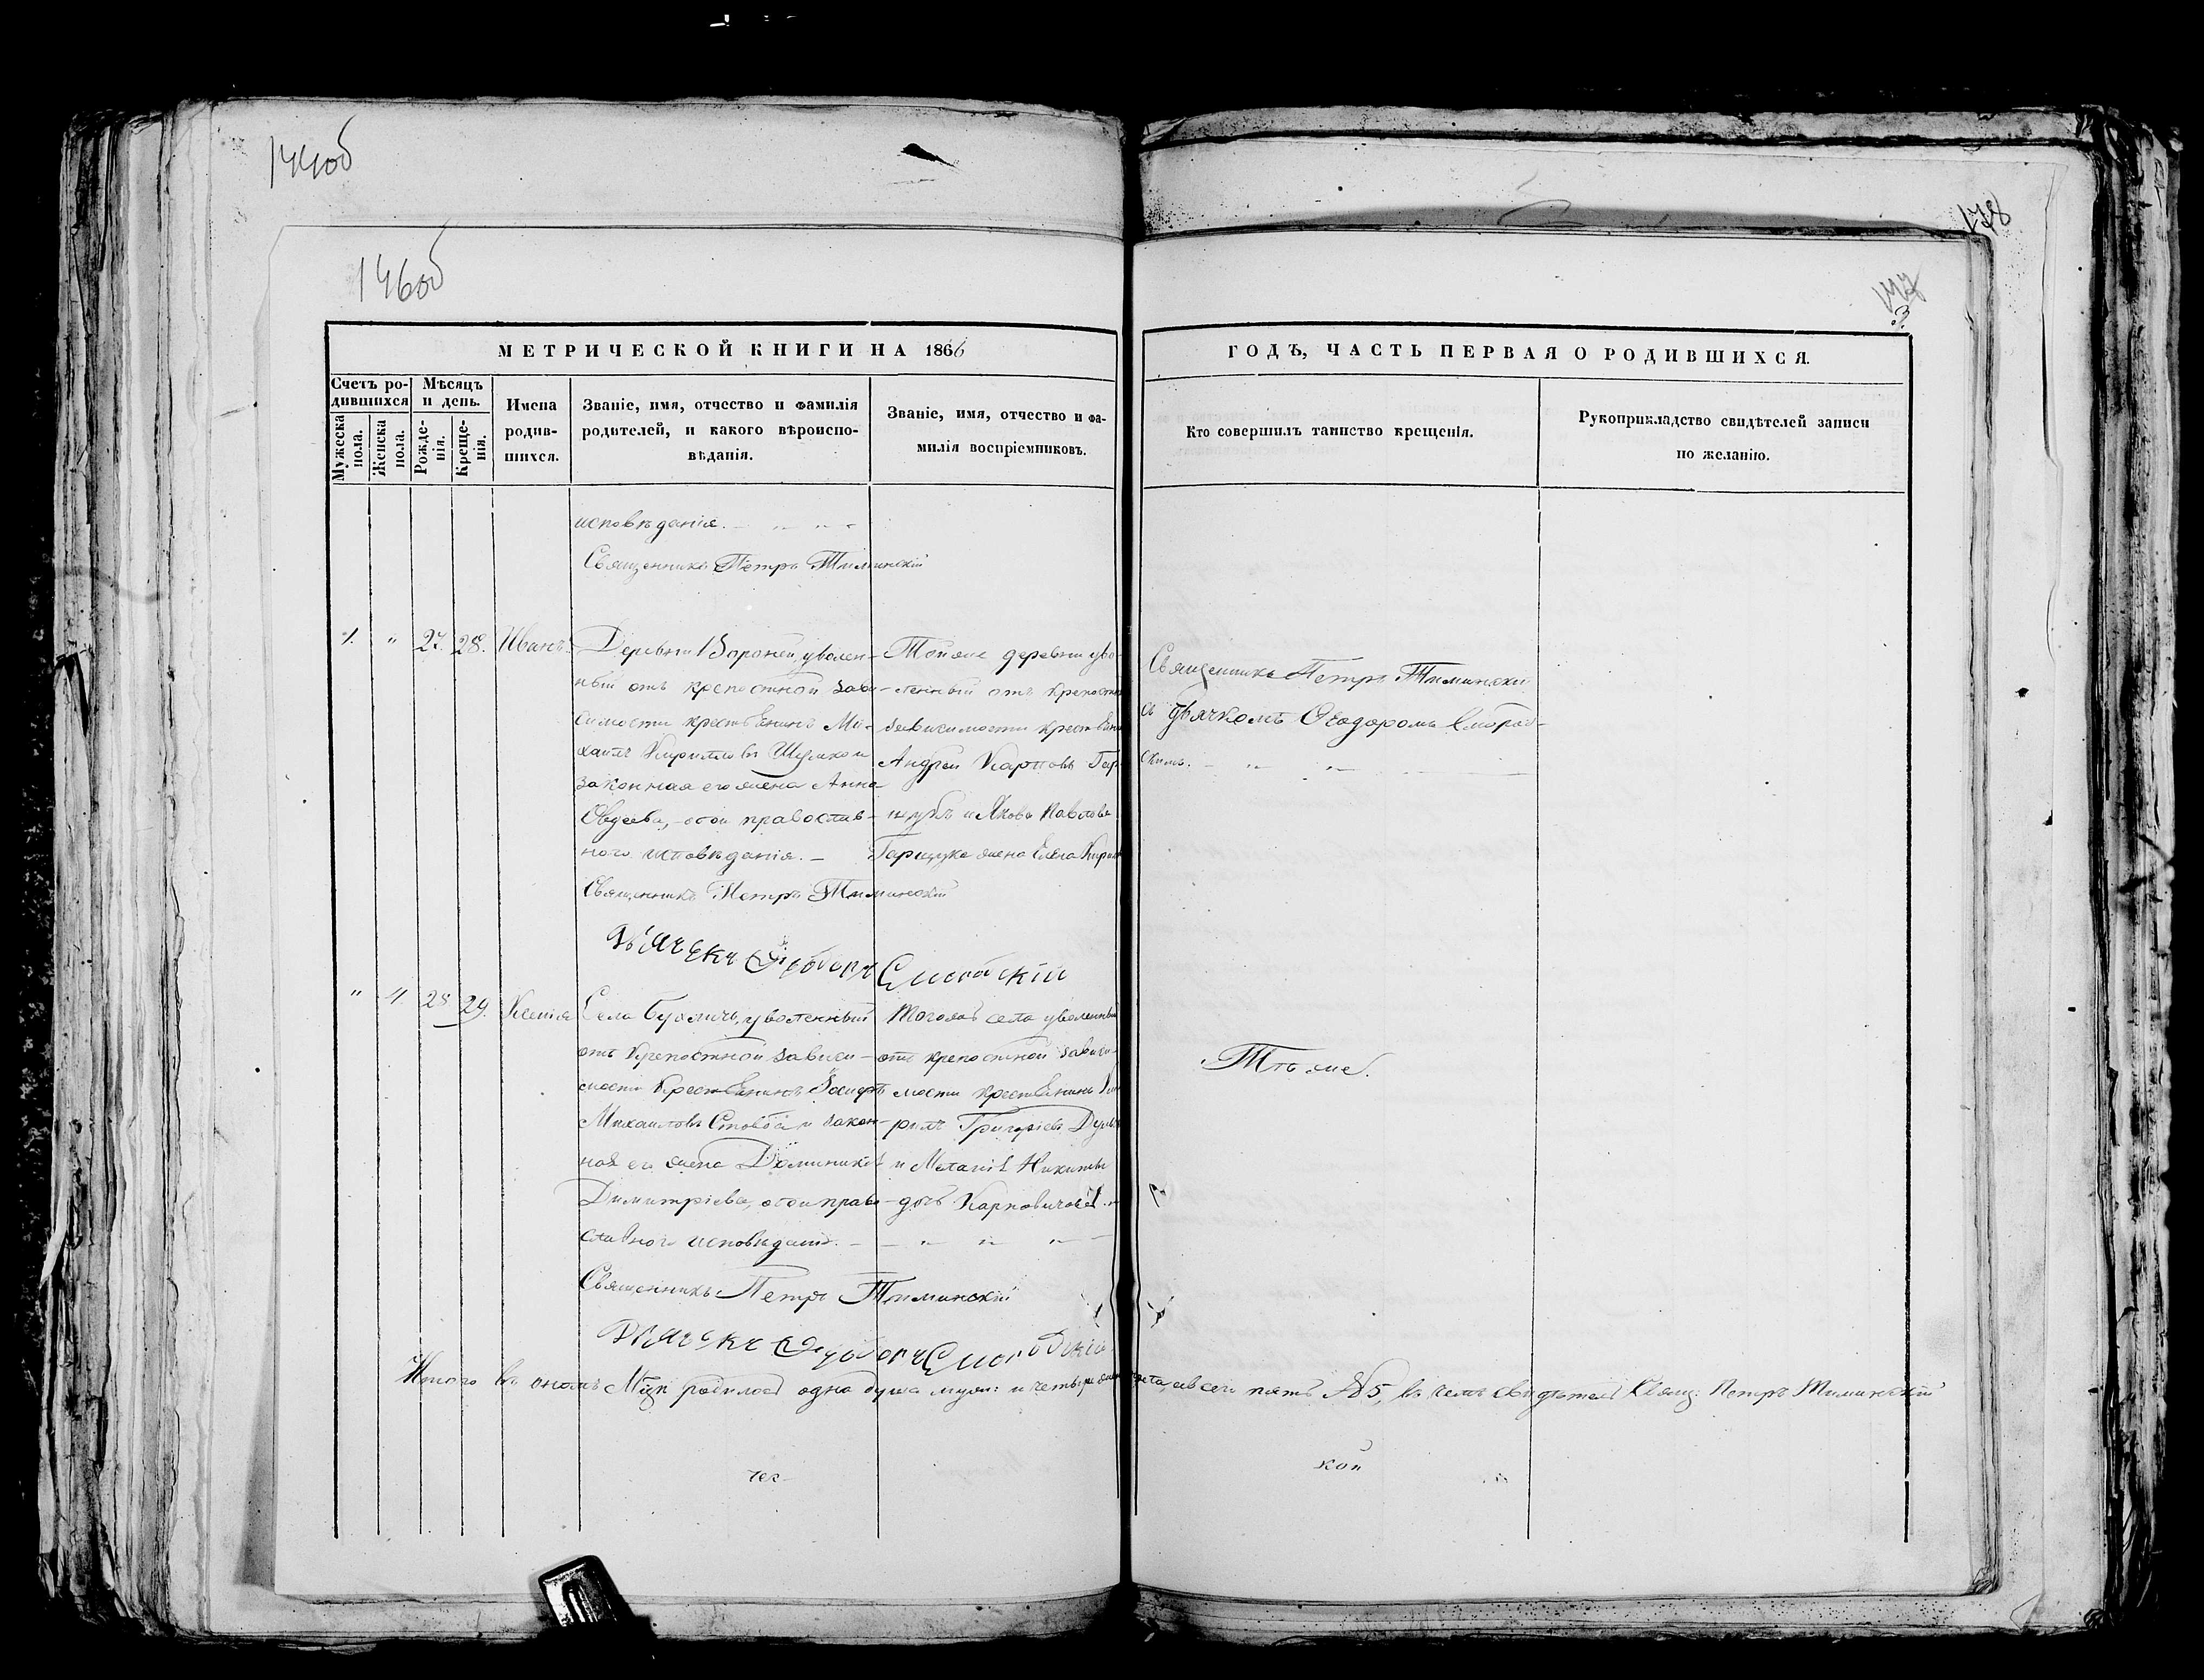 144об
146об
178
147
3.
МЕТРИЧЕСКОЙ КНИГИ НА 1866
ГОДЪ, ЧАСТЬ ПЕРВАЯ О РОДИВШИХСЯ.
Счетъ ро-
дившихся
Мужеска
пола.
Женска
пола.
Мѣсяцъ
и день.
Рожде-
нія.
Креще-
нія.
Имена
родив-
шихся.
Званіе, имя, отчество и фамилія
родителей, и какого вѣроиспо-
вѣданія.
Званіе, имя, отчество и фа-
милія воспріемниковъ.
Кто совершилъ таинство крещенія.
Рукоприкладство свидѣтелей записи
по желанію.
исповѣданія.
Священникъ Петръ Тиминскій
1. " 27. 28. Иванъ.
Деревни Вороней, уволен-
ный отъ крепостной зави-
симости крестьянинъ Ми-
хаилъ Кирилловъ и
законная его жена Анна
Овдеева, обои православ-
ного исповѣданія. —
Священникъ Петръ Тиминскій
Дьячекъ Ѳеодоръ Смородскій
Тойже деревни уво-
ленный отъ крепостн
зависимости крестьяни
Андрей Карповъ Гар
и Яковъ Павловъ
жена Елена
Священникъ Петръ Тиминскій
съ дьячкомъ Ѳеодоромъ Смород-
скимъ.
" 4. 28 29. Ксенія
Села уволенный
отъ Крепостной зависи-
мости Крестьянинъ Іосифъ
Михаиловъ Столба и закон-
ная его жена Доминикія
Димитріева, обои право-
славного исповѣданія. —
Священникъ Петръ Тиминскій
Дьячекъ Ѳеодоръ Смородскій
Тогожъ села уволенный
отъ крепостной зависи-
мости крестьянинъ Ки-
рилъ Григорьевъ
и Меланія Никиты
дочь Карповичова.
Тѣ же.
Итого въ ономъ М-цѣ родилось одна душа муж: и четыре женска, а всего пять № 5, въ чемъ свидѣтел Свящ: Петръ Тиминскій